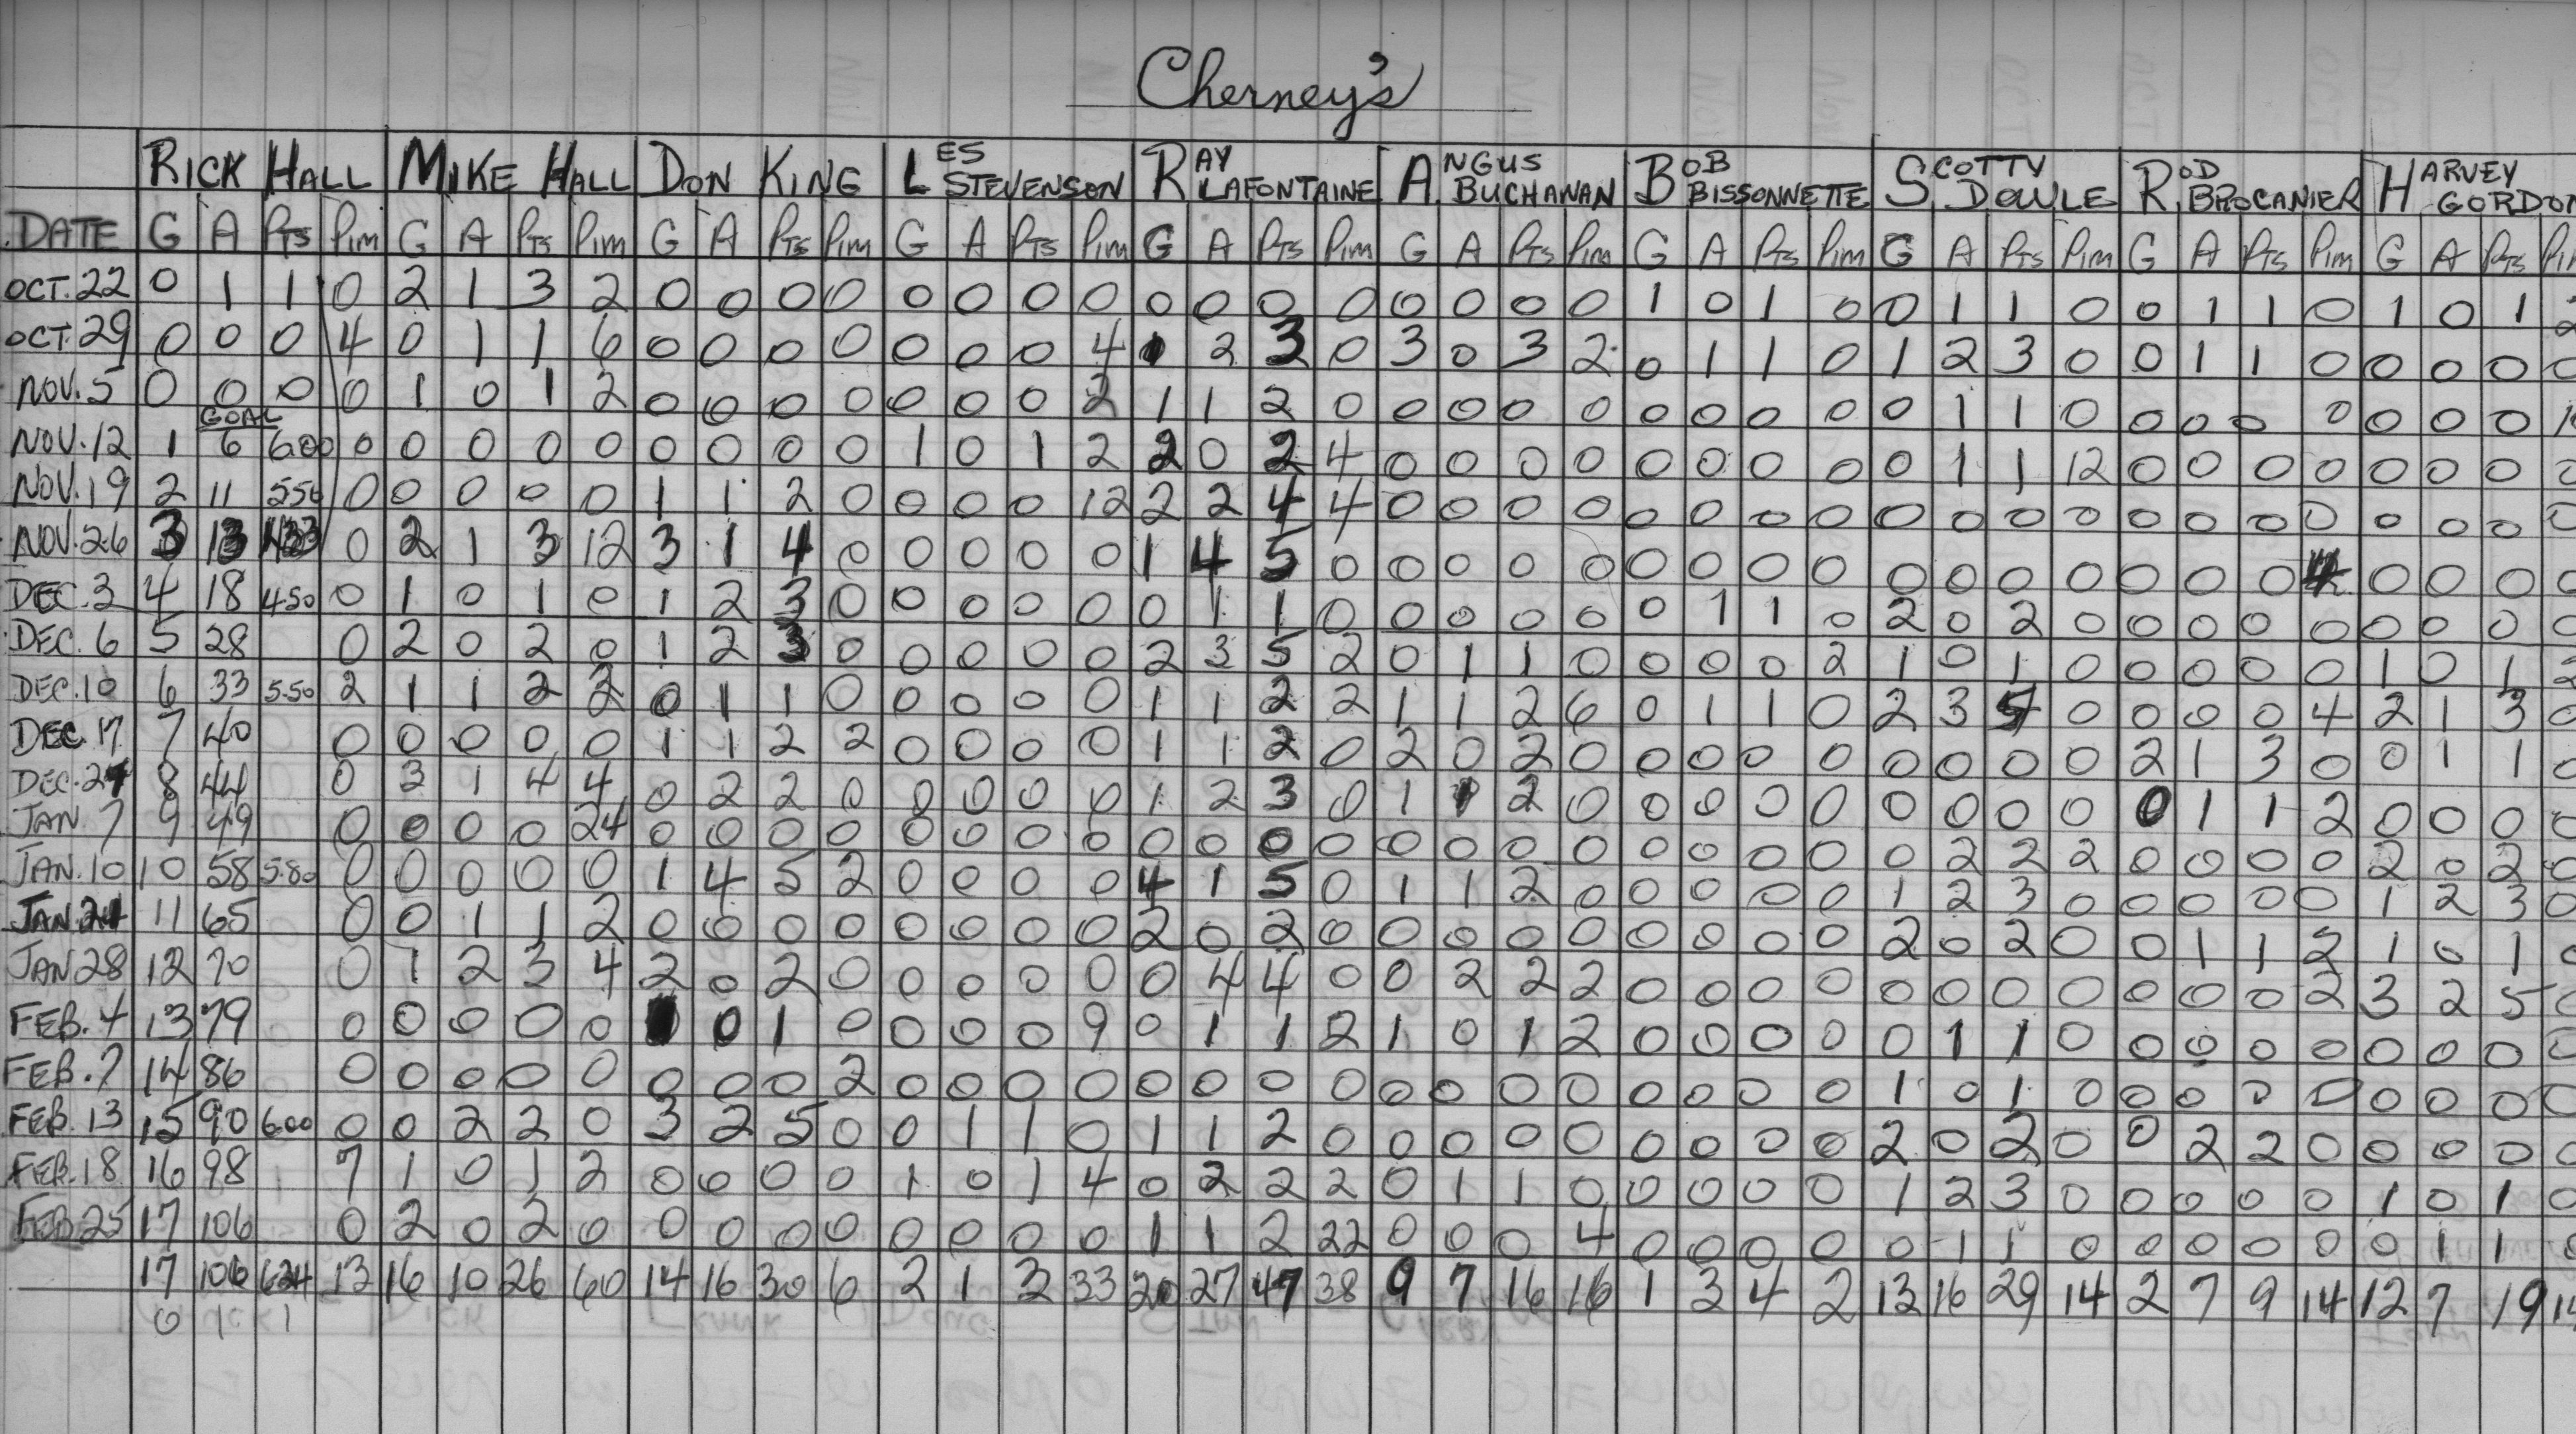 Cherney's
RICK HALL MIKE HALL DON KING LES STEVENSON RAY LAFONTAINE ANGUS BUCHANAN BOB BISSONNETTE SCOTTY DOULE ROD BROCANIER HARVEY GORDON
DATE G A PTS PIM G A PTS PIM G A PTS PIM G A PTS PIM G A PTS PIM G A PTS PIM G A PTS PIM G A PTS PIM G A PTS PIM G A PTS
OCT. 22 0 1 1 0 2 1 3 2 0 0 0 0 0 0 0 0 0 0 0 0 0 0 0 0 1 0 1 0 0 1 1 0 0 1 1 0 1 0 1 2
OCT. 29 0 0 0 4 0 1 1 6 0 0 0 0 0 0 0 4 1 2 3 0 3 0 3 2 0 1 1 0 1 2 3 0 0 1 1 0 0 0 0 0
NOV. 5 0 0 0 0 1 0 1 2 0 0 0 0 0 0 0 2 1 1 2 0 0 0 0 0 0 0 0 0 0 1 1 0 0 0 0 0 0 0 0
GOAL
NOV. 12 1 6 600 0 0 0 0 0 0 0 0 0 1 0 1 2 2 0 2 4 0 0 0 0 0 0 0 0 0 1 1 12 0 0 0 0 0 0 0 0
NOV. 19 2 11 550 0 0 0 0 0 1 1 2 0 0 0 0 12 2 2 4 4 0 0 0 0 0 0 0 0 0 0 0 0 0 0 0 0 0 0 0 0
NOV. 26 3 13 433 0 2 1 3 12 3 1 4 0 0 0 0 0 1 4 5 0 0 0 0 0 0 0 0 0 0 0 0 0 0 0 0 4 0 0 0 0
DEC. 3 4 18 4.50 0 1 0 1 0 1 2 3 0 0 0 0 0 0 1 1 0 0 0 0 0 0 1 1 0 2 0 2 0 0 0 0 0 0 0 0 0
DEC. 6 5 28 0 2 0 2 0 1 2 3 0 0 0 0 0 2 3 5 2 0 1 1 0 0 0 0 2 1 0 1 0 0 0 0 0 1 0 1 2
DEC. 10 6 33 5.50 2 1 1 2 2 0 1 1 0 0 0 0 0 1 1 2 2 1 1 2 6 0 1 1 0 2 3 5 0 0 0 0 4 2 1 3 0
DEC. 17 7 40 0 0 0 0 0 1 1 2 2 0 0 0 0 1 1 2 0 2 0 2 0 0 0 0 0 0 0 0 0 2 1 3 0 0 1 1 0
DEC. 27 8 44 0 3 1 4 4 0 2 2 0 0 0 0 0 1 2 3 0 1 1 2 0 0 0 0 0 0 0 0 0 0 1 1 2 0 0 0 0
JAN. 7 9 49 0 0 0 0 24 0 0 0 0 0 0 0 0 0 0 0 0 0 0 0 0 0 0 0 0 0 2 2 2 0 0 0 0 2 0 2 0
JAN. 10 10 58 5.80 0 0 0 0 0 1 4 5 2 0 0 0 0 4 1 5 0 1 1 2 0 0 0 0 0 1 2 3 0 0 0 0 0 1 2 3 0
JAN. 21 11 65 0 0 1 1 2 0 0 0 0 0 0 0 0 2 0 2 0 0 0 0 0 0 0 0 0 2 0 2 0 0 1 1 2 1 0 1
JAN 28 12 70 0 1 2 3 4 2 0 2 0 0 0 0 0 0 4 4 0 0 2 2 2 0 0 0 0 0 0 0 0 0 0 0 2 3 2 5
FEB. 4 13 79 0 0 0 0 0 0 1 0 0 0 0 9 0 1 1 2 1 0 1 2 0 0 0 0 0 1 1 0 0 0 0 0 0 0 0 0
FEB. 7 14 86 0 0 0 0 0 0 0 0 2 0 0 0 0 0 0 0 0 0 0 0 0 0 0 0 0 1 0 1 0 0 0 0 0 0 0 0 0
FEB. 13 15 90 600 0 0 2 2 0 3 2 5 0 0 1 1 0 1 1 2 0 0 0 0 0 0 0 0 0 2 0 2 0 0 2 2 0 0 0 0 0
FEB. 18 16 98 7 1 0 1 2 0 0 0 0 1 0 1 4 0 2 2 2 0 1 1 0 0 0 0 0 1 2 3 0 0 0 0 0 1 0 1 0
FEB 25 17 106 0 2 0 2 0 0 0 0 0 0 0 0 0 1 1 2 22 0 0 0 4 0 0 0 0 0 1 1 0 0 0 0 0 0 1 1
17 106 624 13 16 10 26 60 14 16 30 6 2 1 3 33 20 27 47 38 9 7 16 16 1 3 4 2 13 16 29 14 2 7 9 14 12 7 19